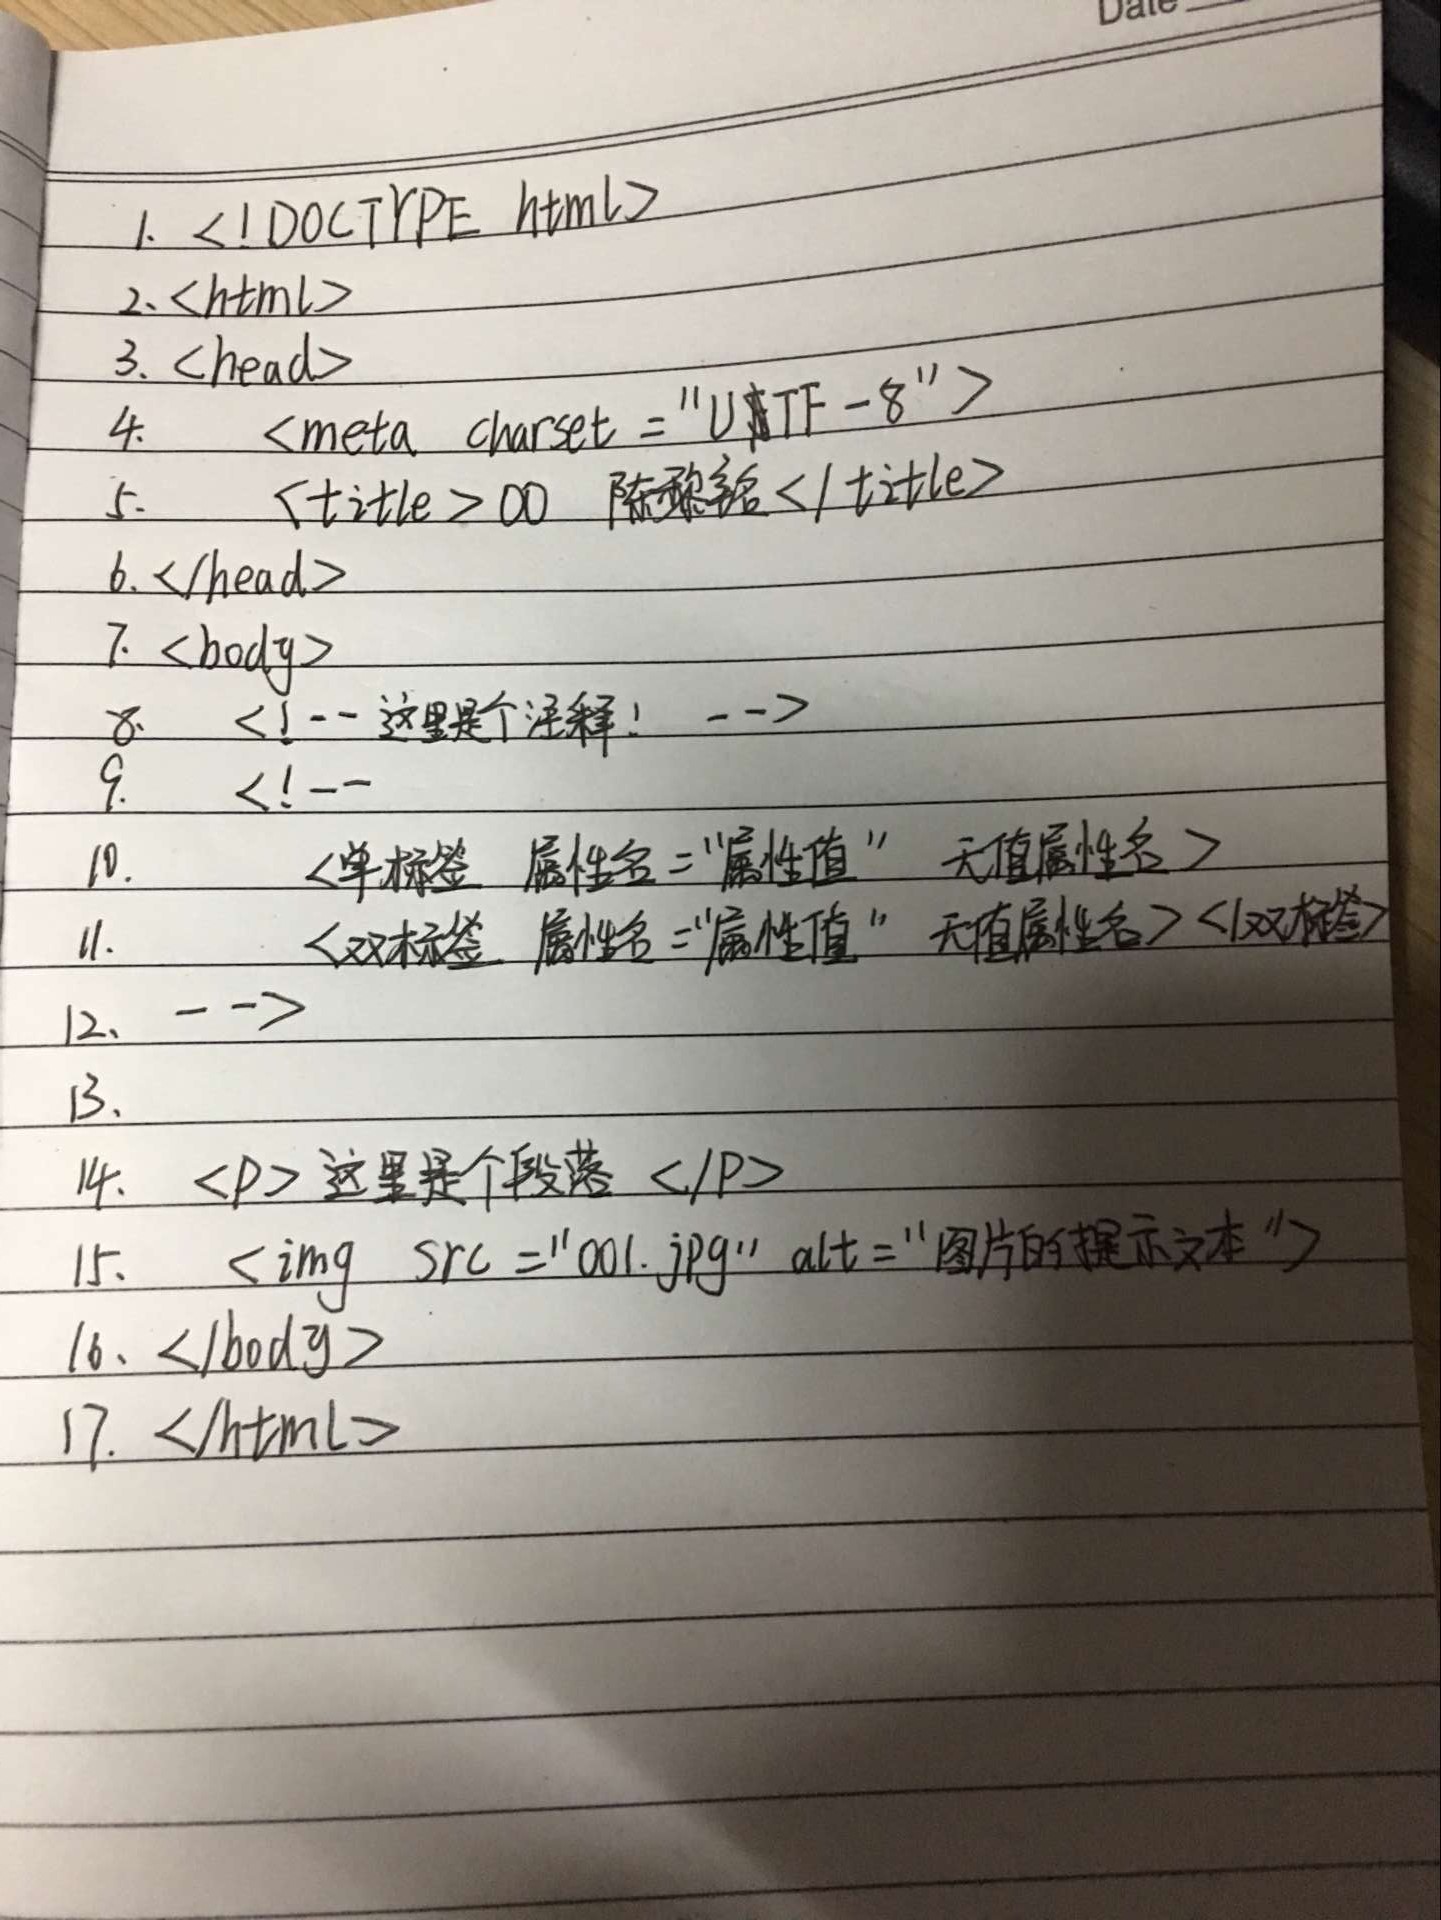 Date
1. <!DOCTYPE html>
2、<html>
3. <head>
4. <meta charset="UTF-8">
5. <title>00 陈</title>
6. </head>
7. <body>
8. <!-- 这里是个注释! -->
9. <!--
10. <单标签 属性名="属性值" 无值属性名>
11. <双标签 属性名="属性值" 无值属性名></双标签>
12、 -->
13、
14、 <P>这里是个段落 </P>
15、 <img src="001.jpg" alt="图片的提示文本">
16、</body>
17. </html>